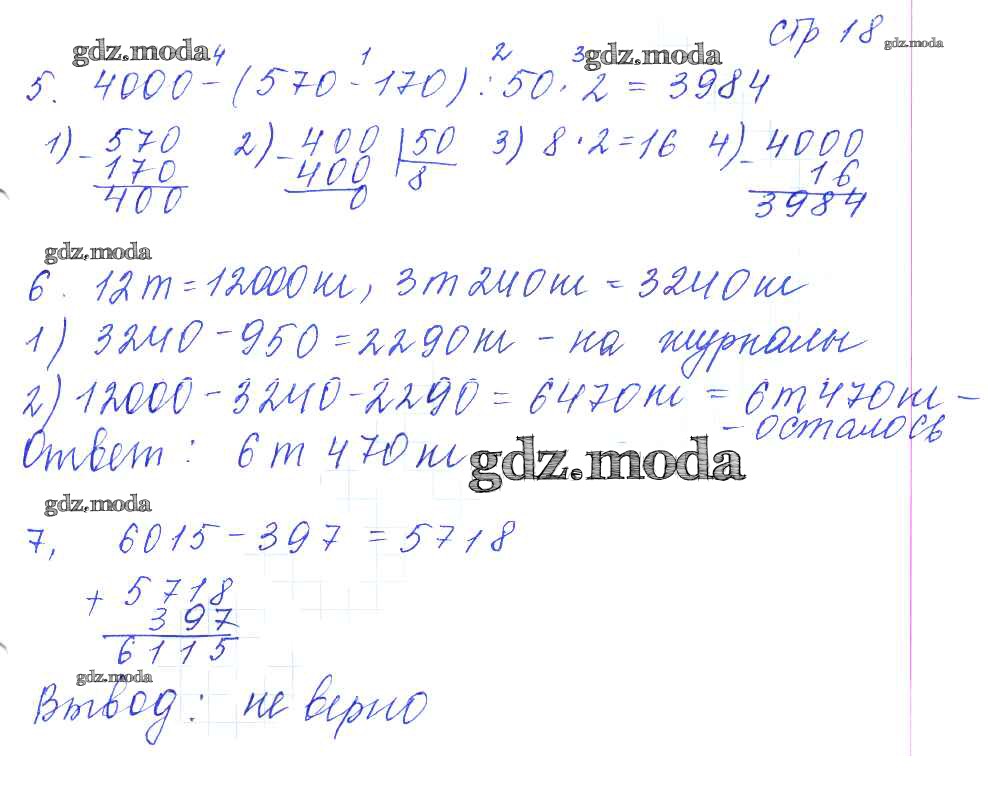 стр 18 gdz.moda
gdz.moda 4 1 2 3 gdz.moda
5. 4000 - (570 - 170) : 50 · 2 = 3984
1) - 570 2) - 400 | 50 3) 8 · 2 = 16 4) - 4000
170 400 8 16
400 0 3984
gdz.moda
6. 12т = 12000 т, 3т 240 т = 3240 т
1) 3240 - 950 = 2290 т - на журналы
2) 12000 - 3240 - 2290 = 6470 т = 6т 470 т -
- осталось
Ответ: 6 т 470 т
gdz.moda
gdz.moda
7, 6015 - 397 = 5718
+ 5718
397
6115
gdz.moda
Вывод: не верно